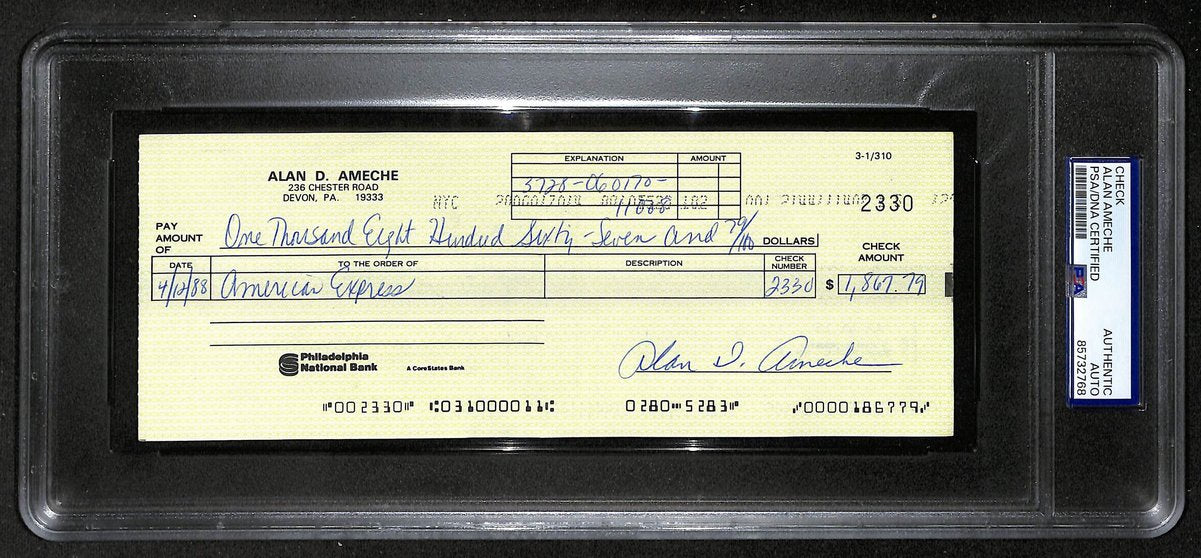 EXPLANATION AMOUNT
3-1/310
ALAN D. AMECHE
236 CHESTER ROAD
DEVON, PA. 19333
3728-060170-
11000
NYC
2330
PAY
AMOUNT
OF
One Thousand Eight Hundred Sixty-Seven and 79/100 DOLLARS
CHECK
AMOUNT
DATE TO THE ORDER OF DESCRIPTION CHECK NUMBER
4/12/88 American Express 2330 $ 1,867.79
Philadelphia
National Bank
A CoreStates Bank
Alan D. Ameche
⑈002330⑈ ⑆031000011⑆ 0280⑉5283⑈ ⑇0000186779⑇
CHECK
ALAN AMECHE
PSA/DNA CERTIFIED
PSA
AUTHENTIC
AUTO
85732768